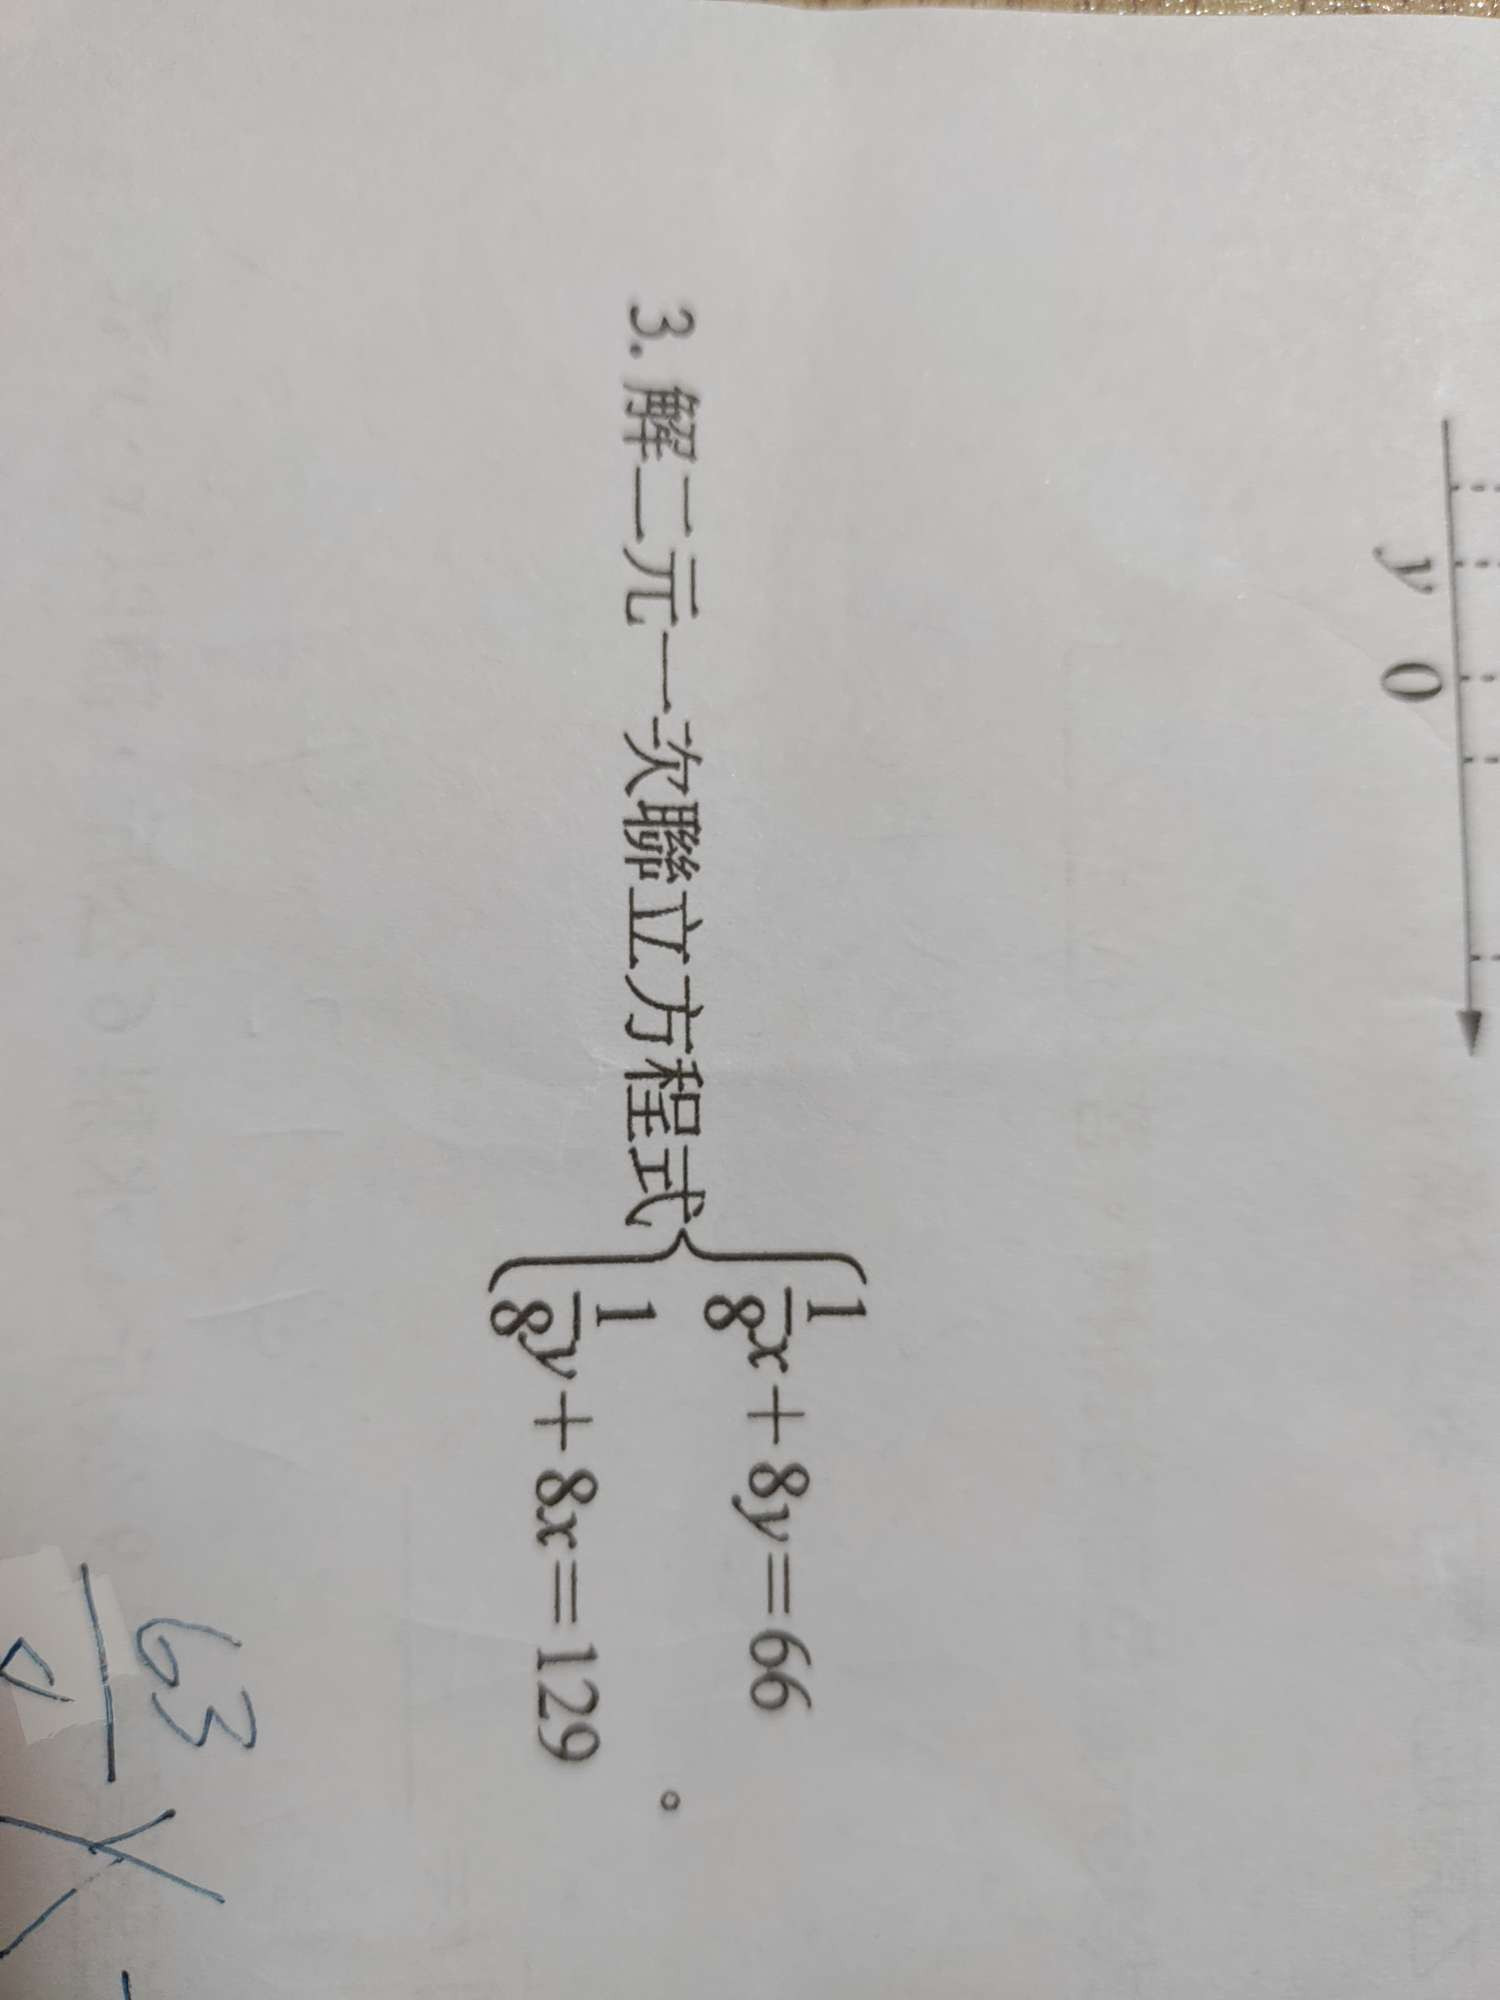 y 0
3. 解二元一次聯立方程式
1/8x+8y=66
1/8y+8x=129 。
63